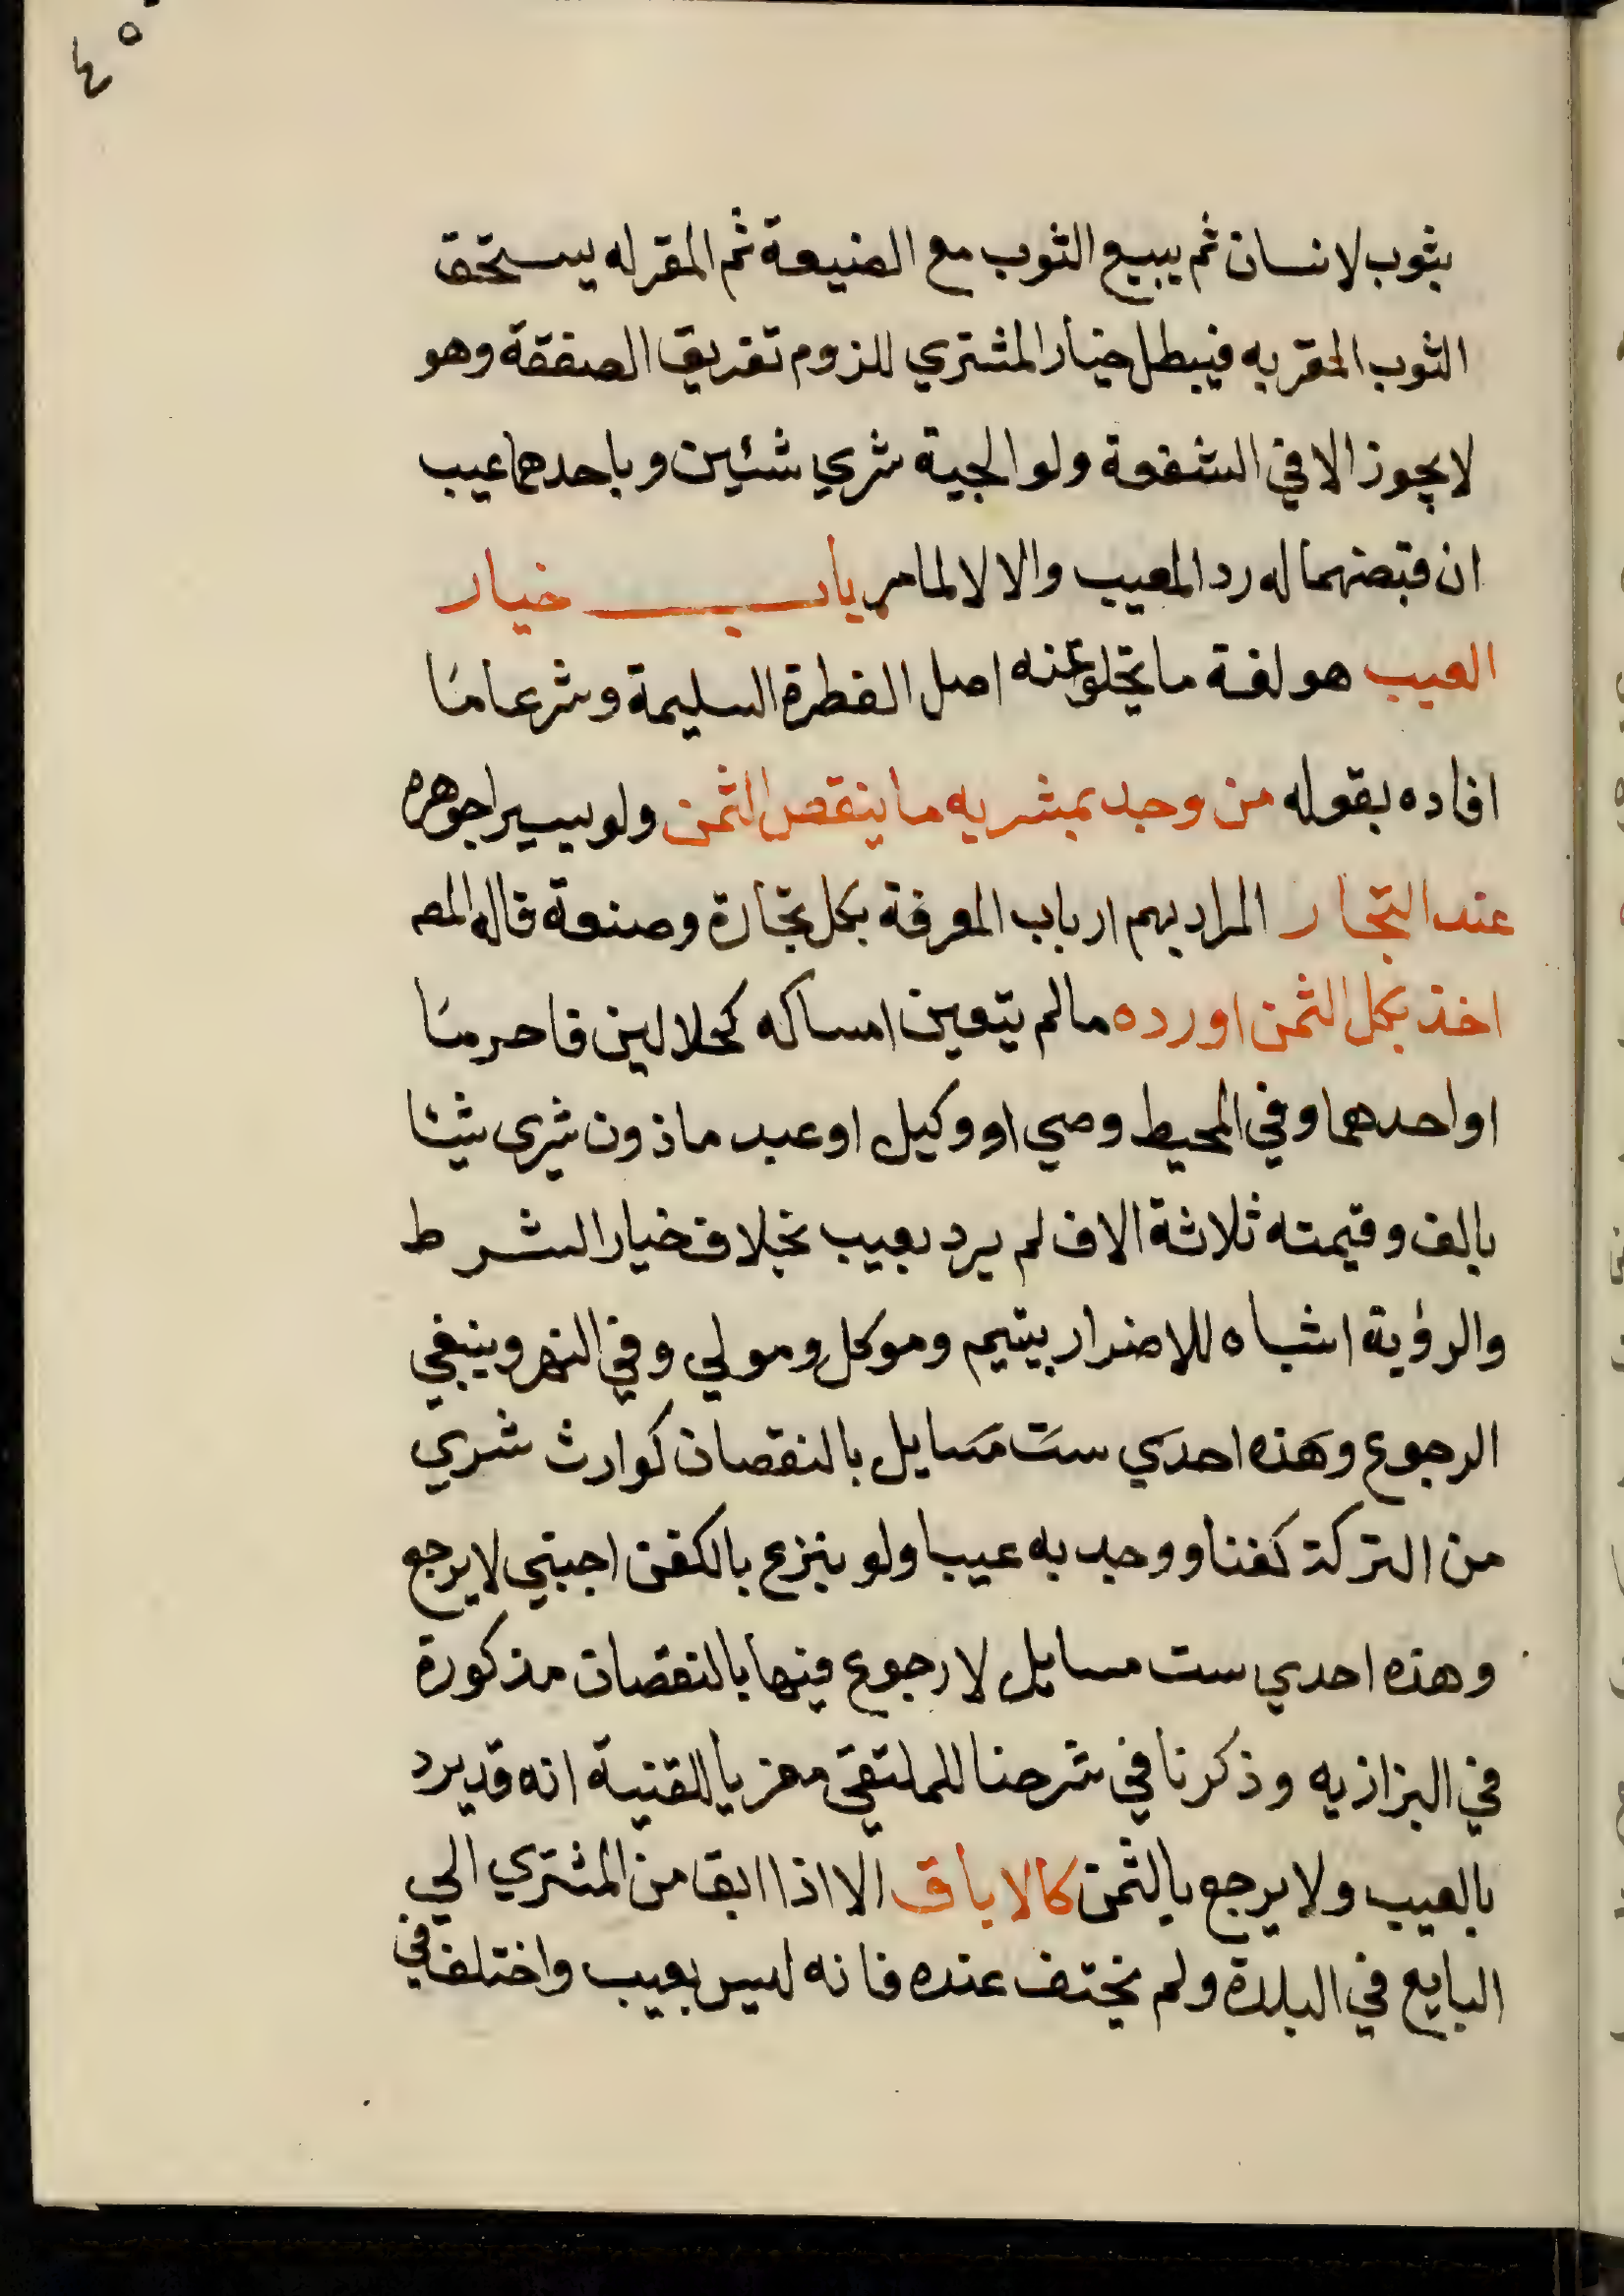 ٤٥
بثوب لانسان ثم يبيع الثوب مع الضيعة ثم المقر له يستحق
الثوب المقر به فيبطل خيار المشتري للزوم تفريق الصفقة وهو
لا يجوز الا في الشفعة ولوالجية شري شئين وباحدهما عيب
ان قبضهما له رد المعيب والا لا لما مر باب خيار
العيب هو لغة ما تخلو عنه اصل الفطرة السليمة وشرعا ما
افاده بقوله من وجد بمشريه ما ينقص الثمن ولو يسيرا جوهره
عند التجار المراد بهم ارباب المعرفة بكل تجارة وصنعة قاله المص
اخذ بكل الثمن او رده ما لم يتعين امساكه كحلالين فاحرما
او احدهما وفي المحيط وصي او وكيل او عبد ماذون شري شيئا
بالف وقيمته ثلاثة الاف لم يرد بعيب بخلاف خيار الشرط
والرؤية اشباه للاضرار بيتيم وموكل ومولي وفي النهر وينبغي
الرجوع وهذه احدي ست مسايل بالنقصان كوارث شري
من التركة كفنا ووجد به عيبا ولو ينزع بالكفن اجبني لا يرجع
وهذه احدي ست مسايل لا رجوع فيها بالنقصان مذكورة
في البزازيه وذكرنا في شرحنا للملتقي معزيا للقنية انه قد يرد
بالعيب ولا يرجع بالثمن كالاباق الا اذا ابقا من المشتري الي
البايع في البلدة ولم يختف عنده فانه ليس بعيب واختلف في